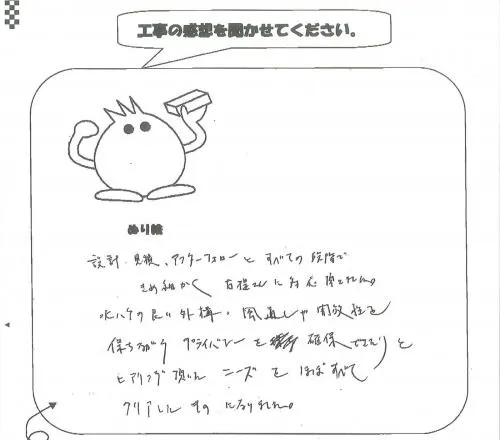 工事の感想を聞かせてください。
ぬり絵
設計、見積、アフターフォローと すべての段階で
きめ細かく に対応 頂きました。
水ハケの良い外構、風通しや開放性を
保ちながら プライバシーを 確保できたりと
ヒアリング頂いた ニーズを ほぼすべて
クリアした ものになりました。